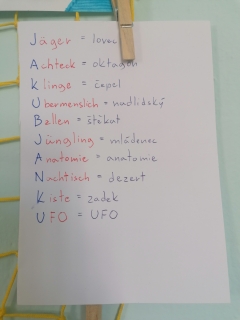 Jäger = lovec
Achteck = oktagon
Klinge = čepel
Übermenslich = nadlidský
Bellen = štěkat
Jüngling = mládenec
Anatomie = anatomie
Nachtisch = dezert
Kiste = zadek
UFO = UFO